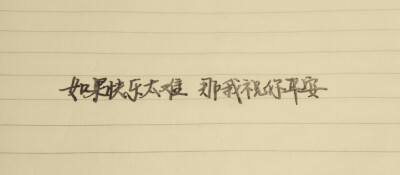 如果快乐太难 那我祝你平安